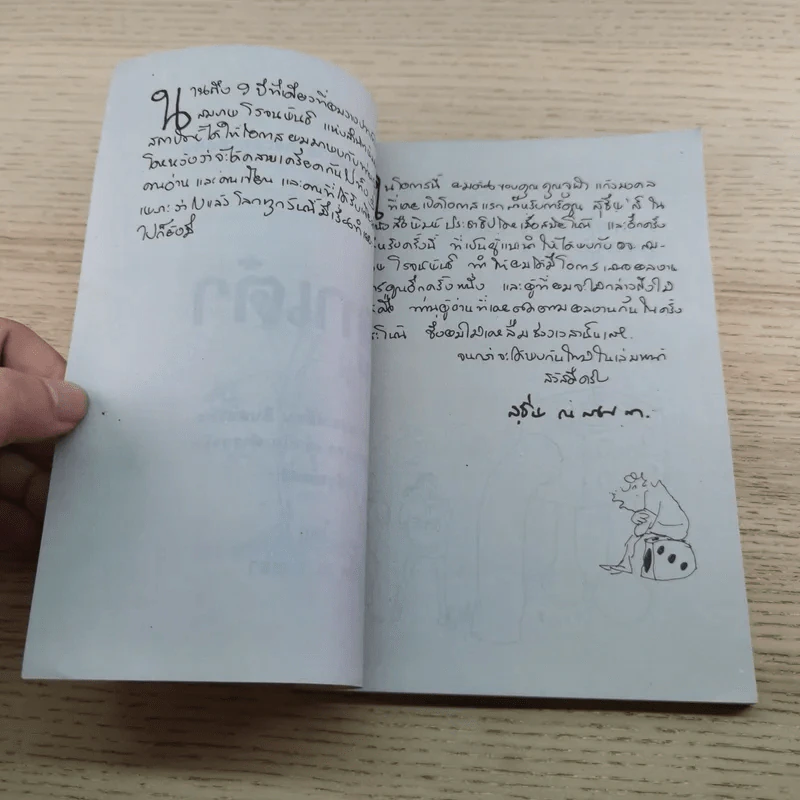 นานถึง 9 ปีทีเดียวที่ผมวาง
สมภพ โรจนพันธ์ แห่งสำนัก
สตาร์ ได้ให้โอกาส ผมมาพบกับ
โดยหวังว่าจะได้คลายเครียดกันไปทั้ง
คนอ่าน และคนเขียน และคนที่ได้รับ
เพราะว่าไปแล้ว โลกทุกวันนี้มีเรื่อง
ไปก็ยังมี
ในโอกาสนี้ ผมต้องขอบคุณ คุณจุฬา แก้วมงคล
ที่เคยเปิดโอกาสแรก สำหรับการ์ตูน สุชีพ'ส์ ใน
หนังสือพิมพ์ ประชาธิปไตย เมื่อสมัยโน้น และอีกครั้ง
สำหรับครั้งนี้ ที่เป็นผู้แนะนำ ให้ได้พบกับ คุณ สม-
ภพ โรจนพันธ์ ทำให้ผมได้มีโอกาสเสนอผลงาน
การ์ตูนอีกครั้งหนึ่ง และผู้ที่ผมจะไม่กล่าวถึงไม่
ได้คือ ท่านผู้อ่านที่เคยติดตามผลงานกันในครั้ง
กระโน้น ซึ่งผมไม่เคยลืมช่วงเวลานั้นเลย.
จนกว่าจะได้พบกันใหม่ในเล่มหน้า
สวัสดีครับ
สุชีพ ณ สงขลา.